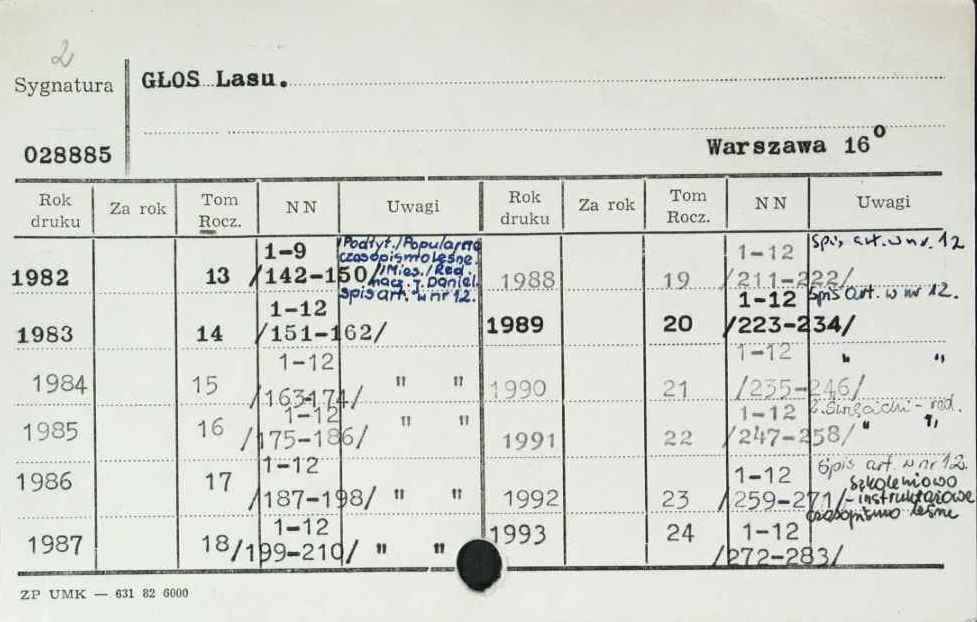 2
Sygnatura
GŁOS Lasu.
028885
Warszawa 16°
Rok druku Za rok Tom Rocz. NN Uwagi Rok druku Za rok Tom Rocz. NN Uwagi
1982 13 1-9 /142-150/
Podtyt./Popularne
czasopismo leśne.
/Mies./Red.
nacz. J. Daniel.
spis art. w nr 12.
1983 14 1-12 /151-162/
1984 15 1-12 /163-174/ " "
1985 16 1-12 /175-186/ " "
1986 17 1-12 /187-198/ " "
1987 18 1-12 /199-210/ " "
1988 19 1-12 /211-222/ Spis art. w nr. 12
1989 20 1-12 /223-234/ Spis art. w nr 12.
1990 21 1-12 /235-246/ " "
1991 22 1-12 /247-258/ - red. " "
1992 23 1-12 /259-271/
Spis art w nr 12.
szkoleniowo
-instruktażowe
czasopismo leśne
1993 24 1-12 /272-283/
ZP UMK — 631 82 6000